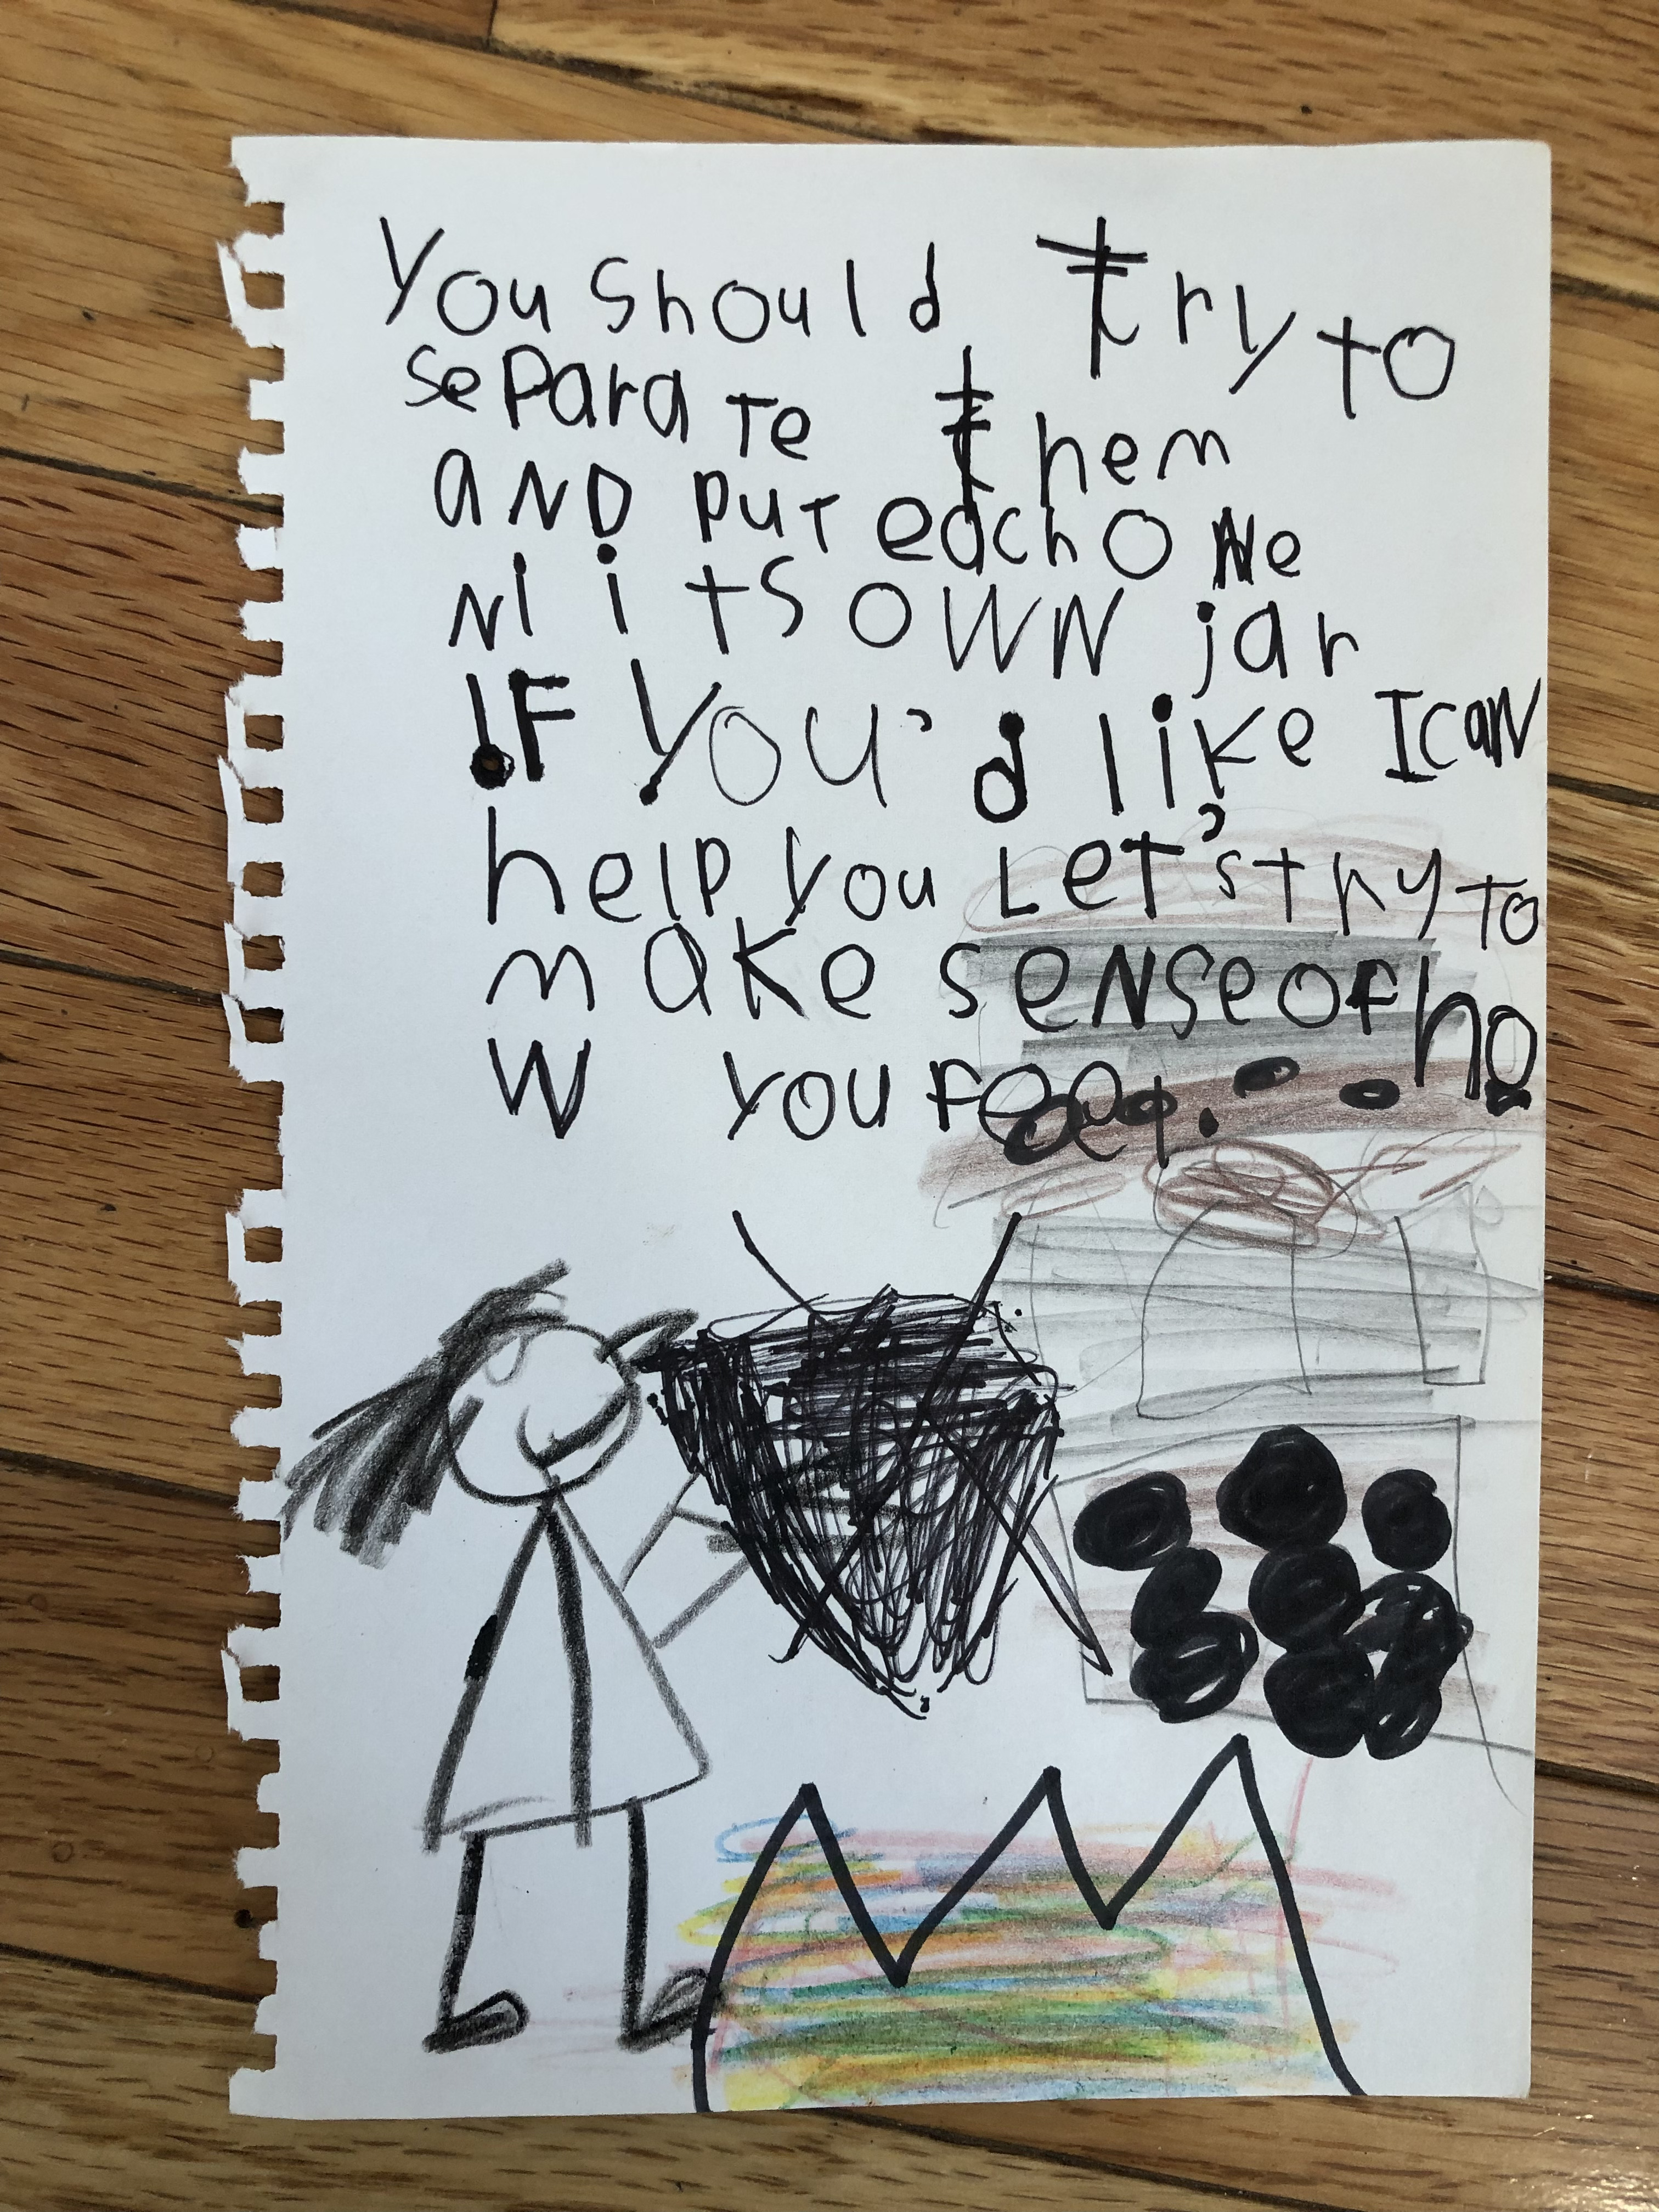 You should try to
separate them
and put each one
ni its own jar
IF you'd like I can
help you Let's try to
make sense of ho
w you feel.